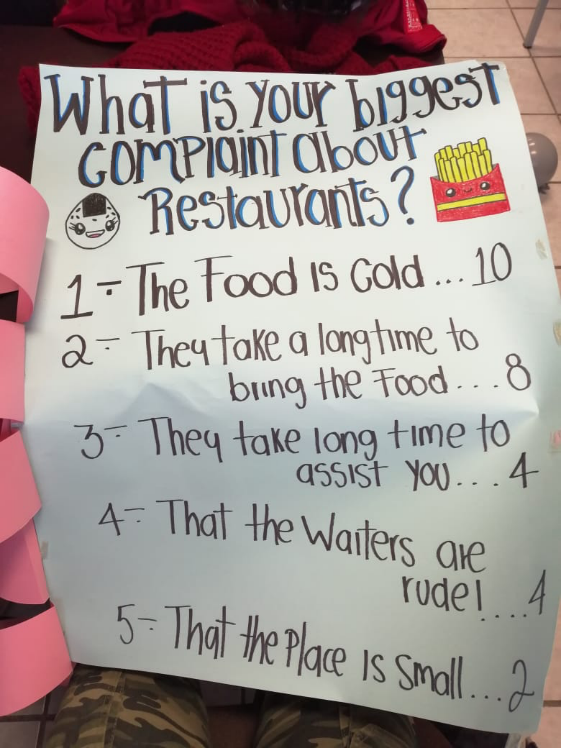 What is your biggest
complaint about
Restaurants?
1- The Food Is Cold ... 10
2- They take a long time to
bring the Food.... 8
3- They take long time to
assist you.... 4
4- That the Waiters are
rude!....4
5- That the Place Is Small...2